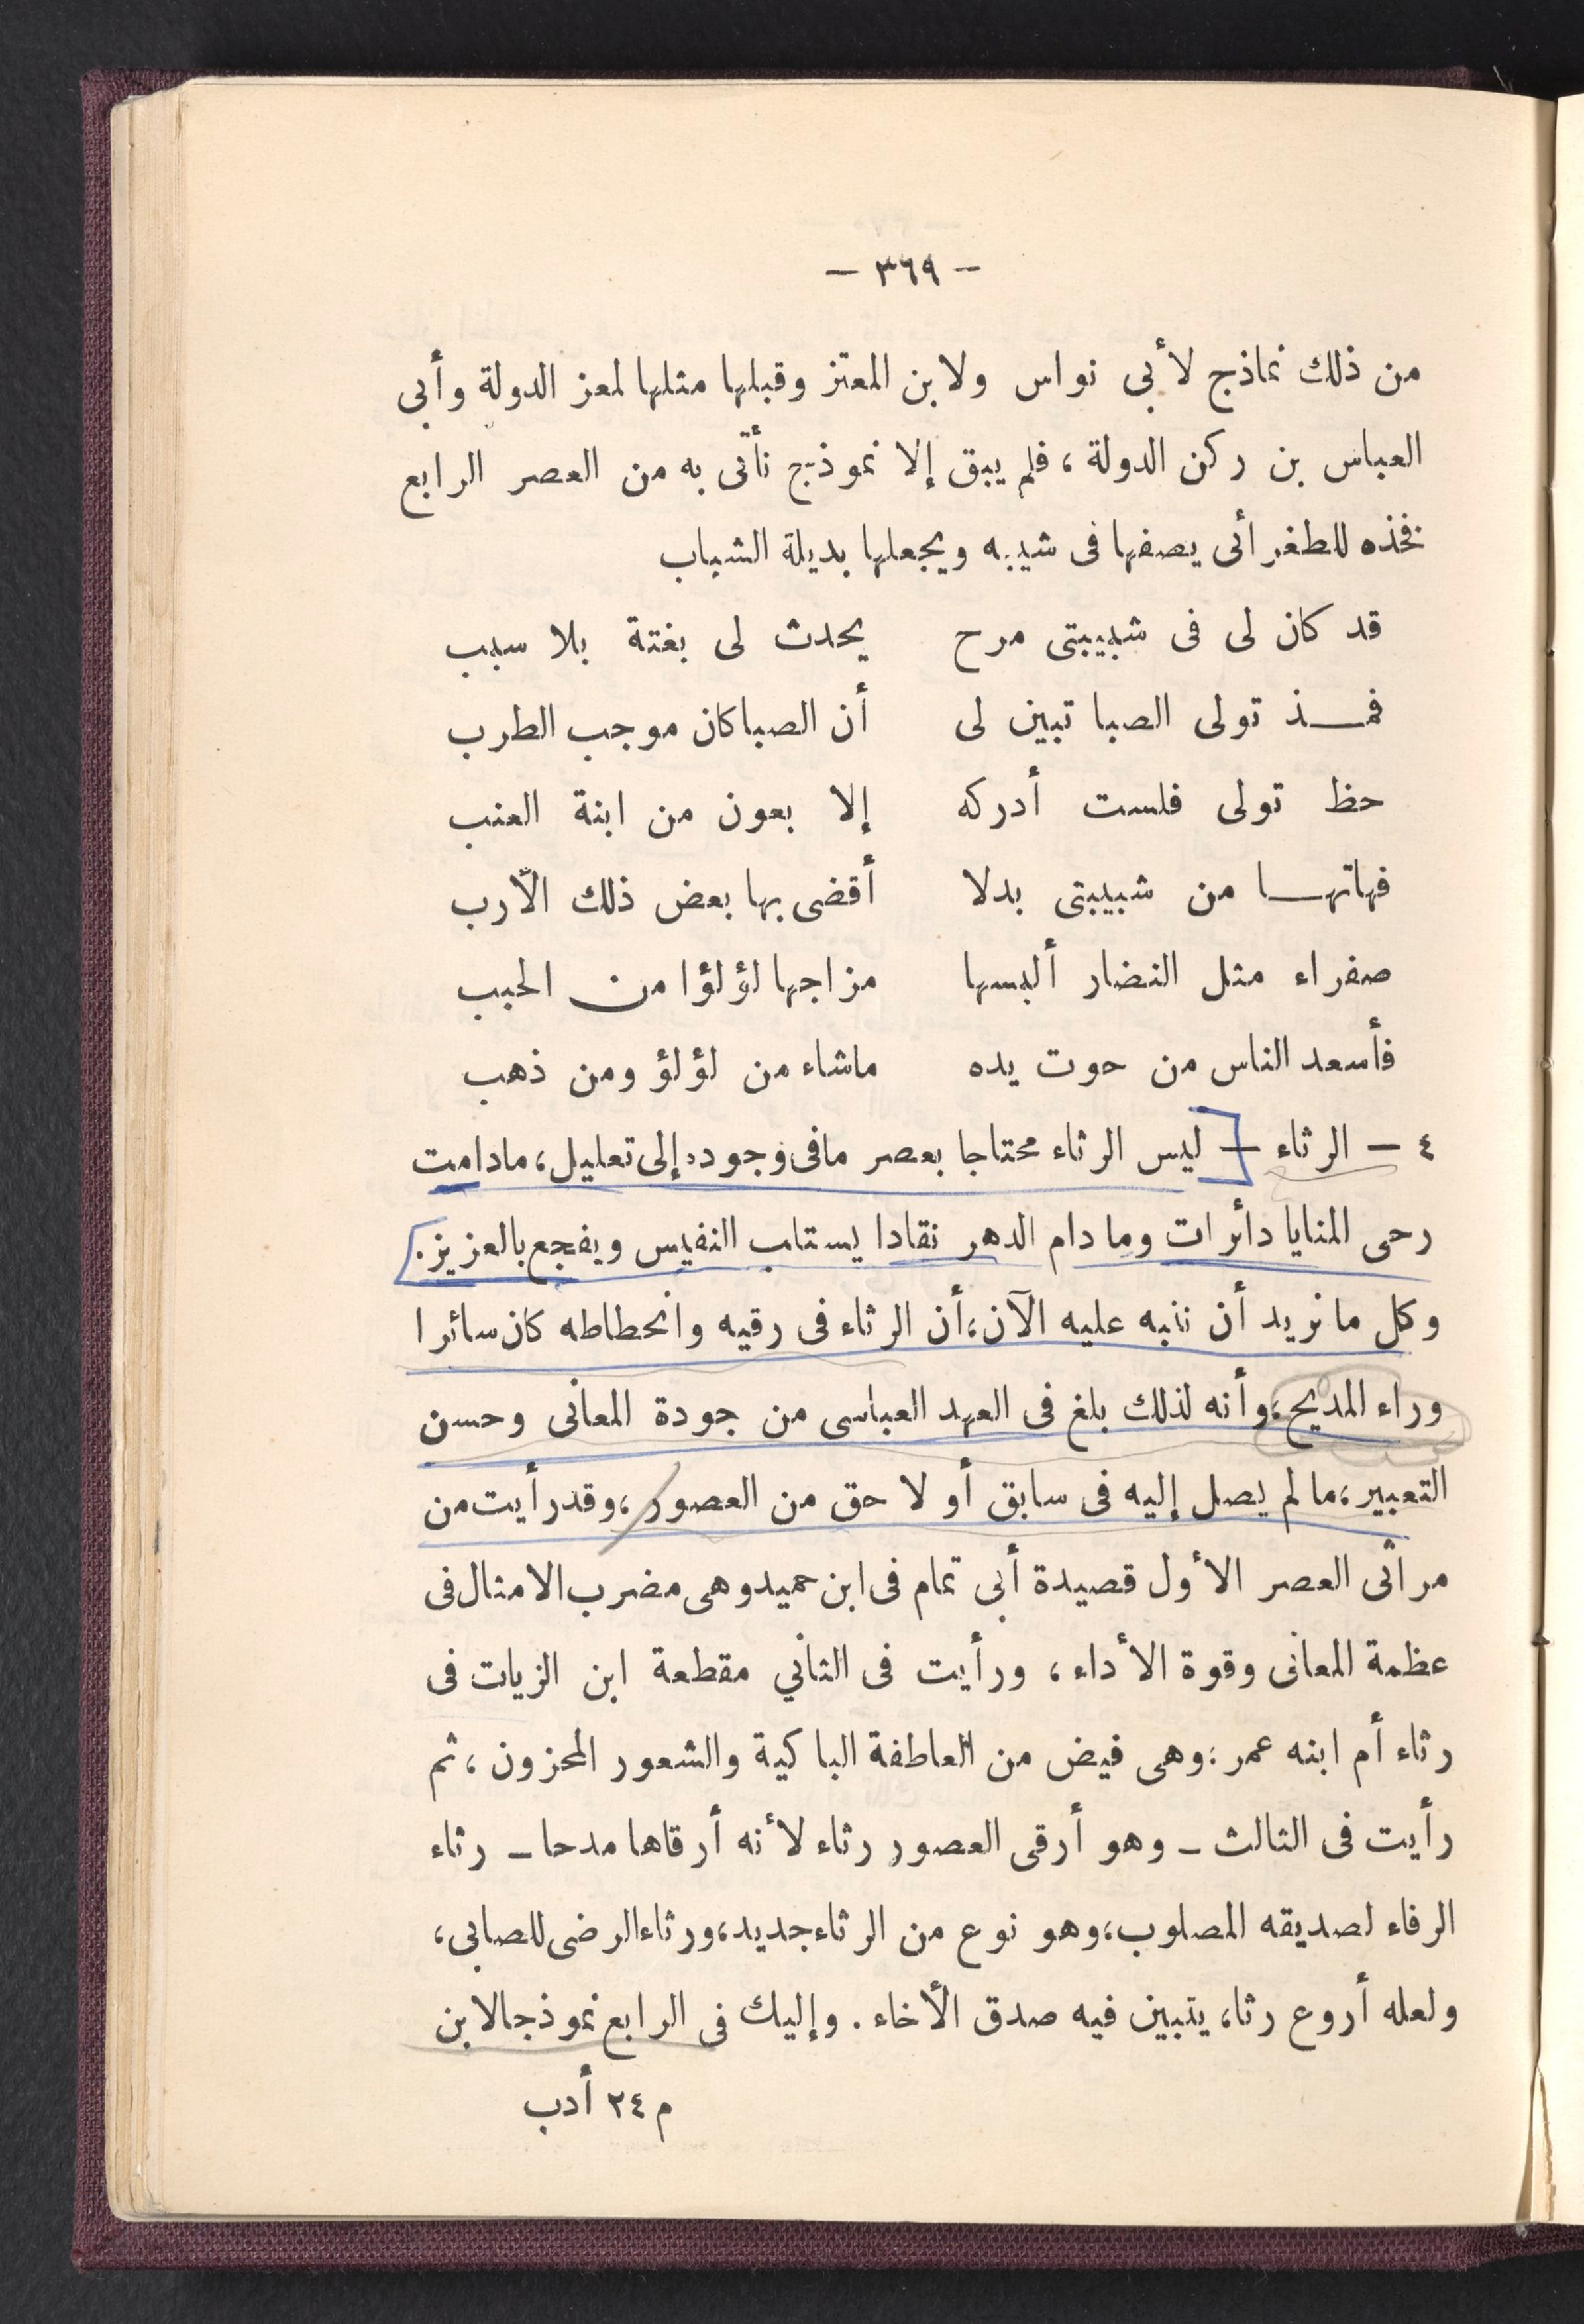 — ٣٦٩ —
من ذلك نماذج لأبي نواس ولابن المعتز وقبلها مثلها لمعز الدولة وأبى
العباس بن ركن الدولة ، فلم يبق إلا نموذج نأتى به من العصر الرابع
فخذه للطغرائى يصفها فى شيبه ويجعلها بديلة الشباب
قد كان لى فى شبيبتى مرح يحدث لى بغتة بلا سبب
فمـــذ تولى الصبا تبين لى أن الصبا كان موجب الطرب
حظ تولى فلست أدركه إلا بعون من ابنة العنب
فهاتهـــا من شبيبتى بدلا أقضى بها بعض ذلك الأرب
صفراء مثل النضار ألبسها مزاجها لؤلؤا من الحبب
فأسعد الناس من حوت يده ماشاء من لؤلؤ ومن ذهب
٤ — الرثاء — ليس الرثاء محتاجا بعصر مافى وجوده إلى تعليل ، مادامت
رحى المنايا دائرات وما دام الدهر نقادا يستلب النفيس ويفجع بالعزيز .
وكل ما نريد أن ننبه عليه الآن ، أن الرثاء فى رقيه وانحطاطه كان سائرا
وراء المديح ، وأنه لذلك بلغ فى العهد العباسى من جودة المعانى وحسن
التعبير ، ما لم يصل إليه فى سابق أو لاحق من العصور ، وقد رأيت من
مراثى العصر الأول قصيدة أبى تمام فى ابن حميد وهى مضرب الامثال فى
عظمة المعانى وقوة الأداء ، ورأيت فى الثاني مقطعة ابن الزيات فى
رثاء أم ابنه عمر ؛ وهى فيض من العاطفة الباكية والشعور المحزون ، ثم
رأيت فى الثالث — وهو أرقى العصور رثاء لأنه أرقاها مدحا — رثاء
الرفاء لصديقه المصلوب ، وهو نوع من الرثاء جديد ، ورثاء الرضى للصابى ،
ولعله أروع رثاء يتبين فيه صدق الأخاء . وإليك فى الرابع نموذجا لابن
م ٢٤ أدب